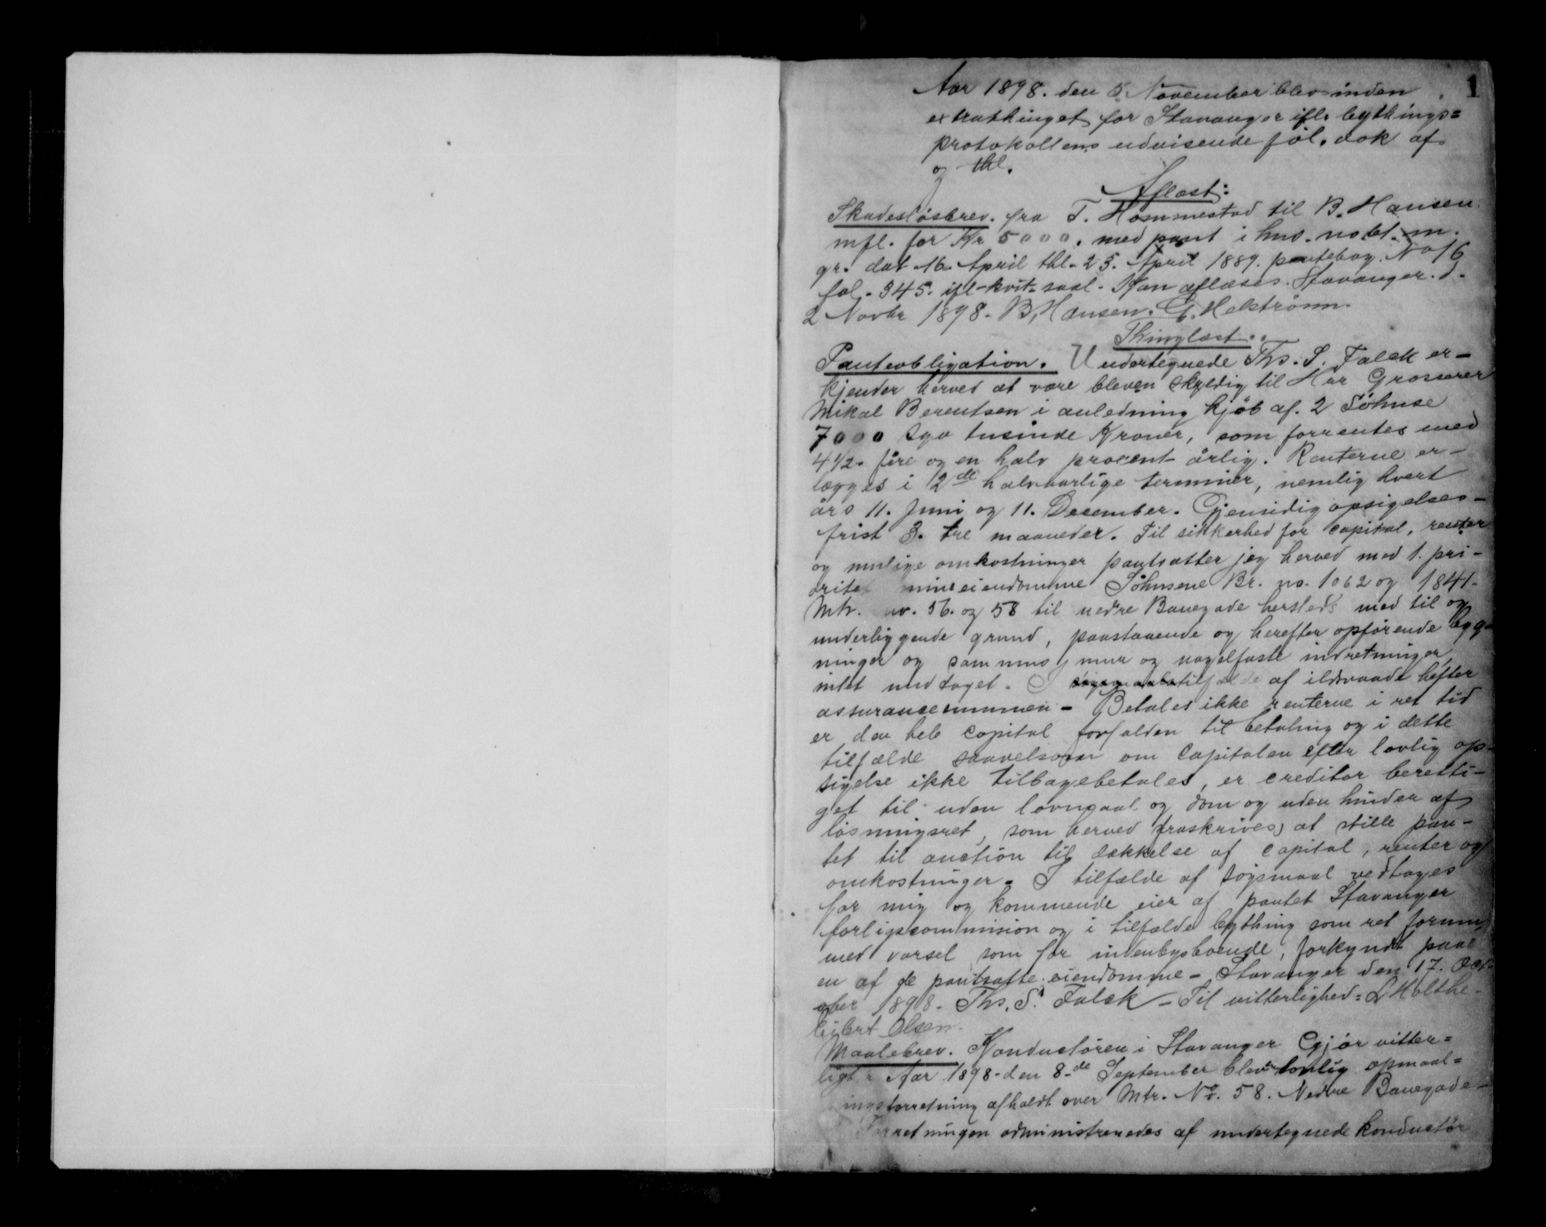 1
Aar 1898. den 5. November blev inden
extrathinget for Stavanger ifl. bythings=
protokollens udvisende føl. dok af
og thl.
Aflæst:
Skadesløsbrev. fra T. Hommestad til B. Hansen
mfl. for Kr 5000. med pant i hus.
gr. dat 16 April thl. 25. April 1889. pantebog. No 16
fol. 345. ifl-kvit-saal. Kan aflæses. Stavanger. d.
2 Novbr 1898. B. Hansen. G. Helstrøm.
Thinglæst:
Panteobligation. Undertegnede Ths. S. Falck er-
kjender herved at være bleven skyldig til Herr Grosserer
Mikal Berentsen i anledning kjøb af. 2 Söhuse
7000 syv tusinde Kroner, som forrentes med
4½. fire og en halv procent årlig. Renterne er-
lægges i 2de halvaarlige terminer, nemlig hvert
års 11. Juni og 11. December. Gjensidig opsigelses-
frist 3. tre maaneder. Til sikkerhed for capital, renter
og mulige omkostninger pantsætter jeg herved med 1. pri-
oritet mine eiendomme Söhusene Br. no. 1062 og 1841-
Mtr. no. 56. og 58 til nedre Banegade hersteds med til og
underliggende grund, paastaaende og herefter opførende byg-
ninger og sammes mur og nagelfaste indretninger,
intet undtaget. I tilfælde af ildsvaade hefter
assurancesummen - Betales ikke renterne i ret tid
er den hele capital forfalden til betaling og i dette
tilfælde saavelsom om capitalen efter lovlig op-
sigelse ikke tilbagebetales, er creditor beretti-
get til uden lovmaal og dom og uden hinder af
løsningsret, som herved fraskrives, at stille pan-
tet til auction til dækkelse af capital, renter og
omkostninger. I tilfælde af søgsmaal vedtages
for mig og kommende eier af pantet Stavanger
forligscommission og i tilfælde bything som ret forum
med varsel som for indenbysboende, forkyndt paa
en af de pantsatte eiendomme - Stavanger den 17. Oct-
ober 1898. Ths. S. Falck - Til vitterlighed: L Holthe-
Olsen.
Maalebrev. Konductøren i Stavanger Gjør vitter=
ligt: Aar 1898 den 8-de September blev lovlig opmaal=
ingsforretning afholdt over Mtr. No. 58. Nedre Banegade-
Forretningen administreredes af undertegnede konductør